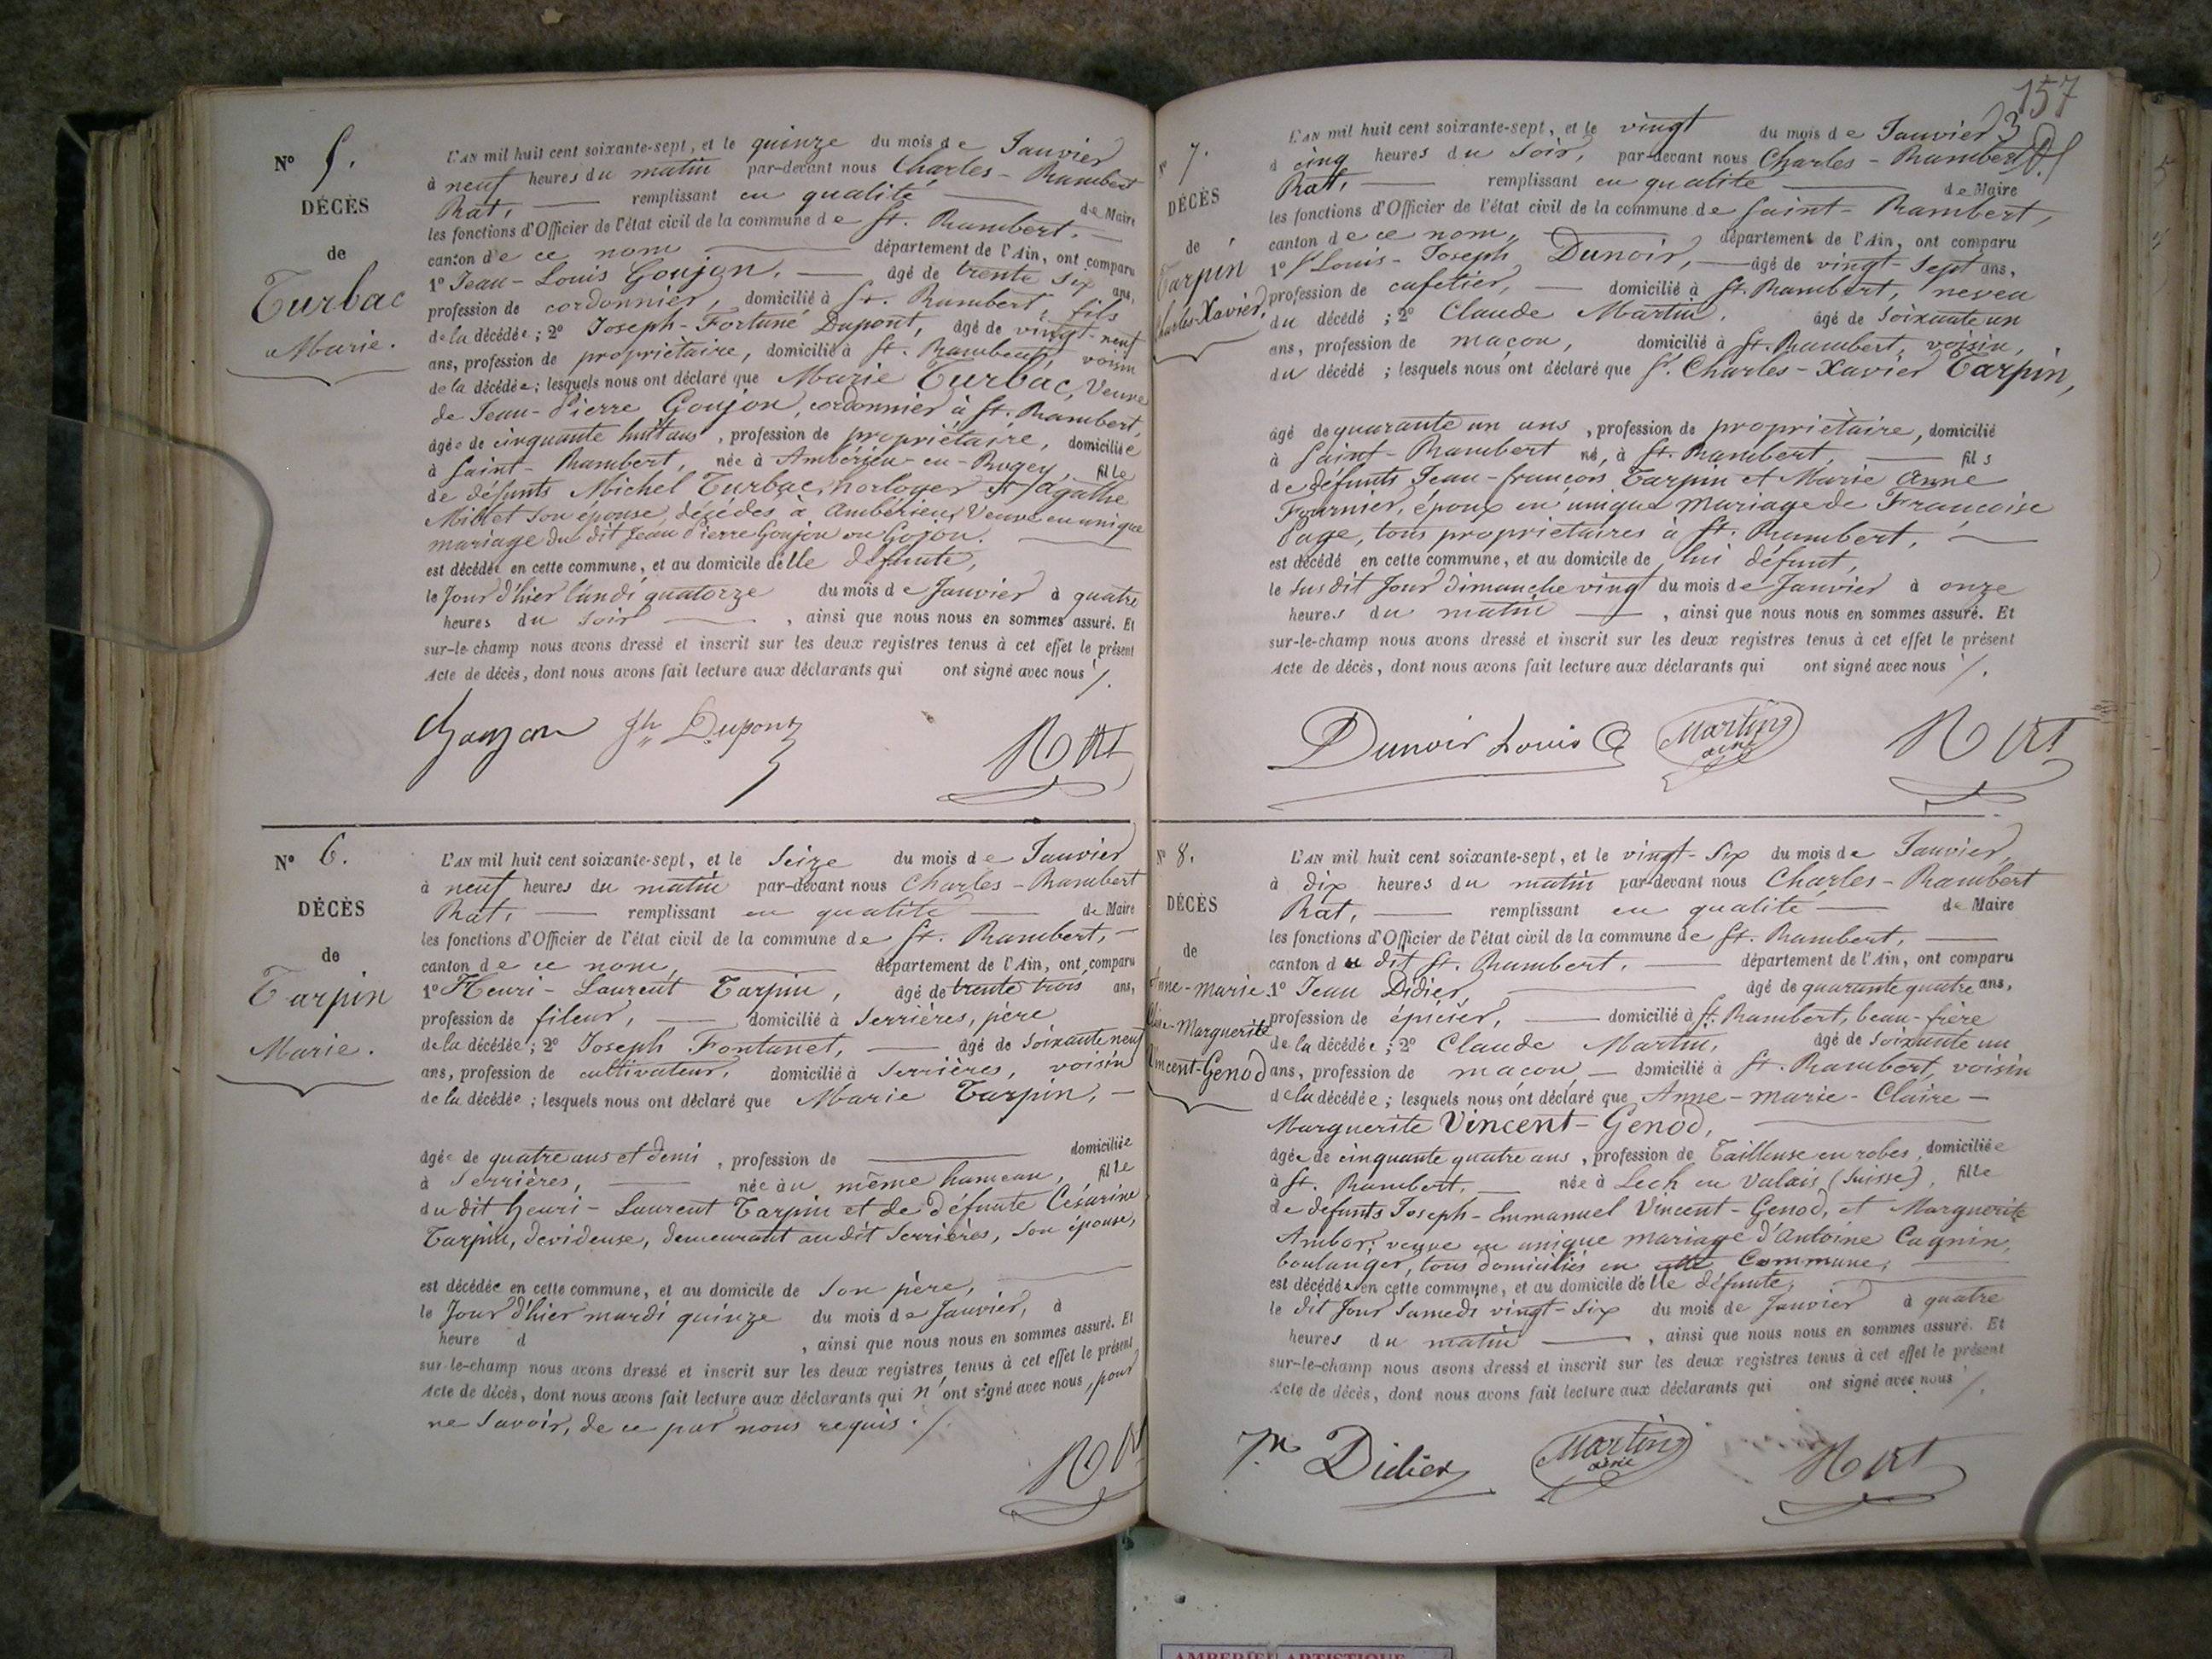 Nº 5.
DÉCÈS
de
Turbac
Marie.
L'AN mil huit cent soixante-sept, et le quinze du mois de Janvier
à neuf heures du matin par-devant nous Charles-Rambert
Rat, remplissant en qualité de Maire
les fonctions d'Officier de l'état civil de la commune de St. Rambert,
canton de ce nom département de l'Ain, ont comparu
1º Jean-Louis Goujon, âgé de trente six ans,
profession de cordonnier, domicilié à St. Rambert, fils
de la décédée; 2º Joseph-Fortuné Dupont, âgé de vingt-neuf
ans, profession de propriétaire, domicilié à St. Rambert, voisin
de la décédée; lesquels nous ont déclaré que Marie Turbac, Veuve
de Jean-Pierre Goujon, cordonnier à St. Rambert,
âgée de cinquante huit ans, profession de propriétaire, domiciliée
à Saint-Rambert, née à Ambérieu-en-Bugey, fille
de défunts Michel Turbac, horloger et Agathe
Millet son épouse, décédés à Ambérieu, Veuve en unique
mariage du dit Jean Pierre Goujon ou Gojon.
est décédée en cette commune, et au domicile d'elle défunte,
le Jour d'hier lundi quatorze du mois de Janvier à quatre
heures du soir, ainsi que nous nous en sommes assuré. Et
sur-le-champ nous avons dressé et inscrit sur les deux registres tenus à cet effet le présent
Acte de décès, dont nous avons fait lecture aux déclarants qui ont signé avec nous ./.
Goujon Jh Dupont Rat
Nº 6.
DÉCÈS
de
Tarpin
Marie.
L'AN mil huit cent soixante-sept, et le Seize du mois de Janvier
à neuf heures du matin par-devant nous Charles-Rambert
Rat, remplissant en qualité de Maire
les fonctions d'Officier de l'état civil de la commune de St. Rambert,
canton de ce nom, département de l'Ain, ont comparu
1º Henri-Laurent Tarpin, âgé de trente trois ans,
profession de fileur, domicilié à Serrières, père
de la décédée; 2º Joseph Fontanet, âgé de Soixante neuf
ans, profession de cultivateur, domicilié à Serrières, voisin
de la décédée; lesquels nous ont déclaré que Marie Tarpin,
âgée de quatre ans et demi, profession de domiciliée
à Serrières, née au même hameau, fille
du dit Henri-Laurent Tarpin et de défunte Césarine
Tarpin, devideuse, demeurant audit Serrières, son épouse,
est décédée en cette commune, et au domicile de Son père,
le Jour d'hier mardi quinze du mois de Janvier, à
heure d , ainsi que nous nous en sommes assuré. Et
sur-le-champ nous avons dressé et inscrit sur les deux registres tenus à cet effet le présent
Acte de décès, dont nous avons fait lecture aux déclarants qui n'ont signé avec nous, pour
ne Savoir, de ce par nous requis. /.
Rat
157
Nº 7.
DÉCÈS
de
Tarpin
Charles-Xavier,
L'AN mil huit cent soixante-sept, et le vingt du mois de Janvier
à cinq heures du Soir, par-devant nous Charles-Rambert
Rat, remplissant en qualité de Maire
les fonctions d'Officier de l'état civil de la commune de Saint-Rambert,
canton de ce nom, département de l'Ain, ont comparu
1º Sr Louis-Joseph Dunoir, âgé de vingt-sept ans,
profession de cafetier, domicilié à St. Rambert, neveu
du décédé; 2º Claude Martin, âgé de Soixante un
ans, profession de maçon, domicilié à St. Rambert, voisin,
du décédé; lesquels nous ont déclaré que Sr. Charles-Xavier Tarpin,
âgé de quarante un ans, profession de propriétaire, domicilié
à Saint-Rambert né, à St. Rambert, fils
de défunts Jean-françois Tarpin et Marie Anne
Fournier, époux en unique mariage de Françoise
Page, tous propriétaires à St. Rambert,
est décédé en cette commune, et au domicile de lui défunt,
le Susdit Jour dimanche vingt du mois de Janvier à onze
heures du matin, ainsi que nous nous en sommes assuré. Et
sur-le-champ nous avons dressé et inscrit sur les deux registres tenus à cet effet le présent
Acte de décès, dont nous avons fait lecture aux déclarants qui ont signé avec nous /.
Dunoir Louis Martin aîné Rat
Nº 8.
DÉCÈS
de
Anne-Marie
Claire-Marguerite
Vincent-Genod
L'AN mil huit cent soixante-sept, et le vingt-Six du mois de Janvier,
à dix heures du matin par-devant nous Charles-Rambert
Rat, remplissant en qualité de Maire
les fonctions d'Officier de l'état civil de la commune de St. Rambert,
canton du dit St. Rambert, département de l'Ain, ont comparu
1º Jean Didier, âgé de quarante quatre ans,
profession de épicier, domicilié à St. Rambert, beau-frère
de la décédée; 2º Claude Martin, âgé de Soixante un
ans, profession de maçon, domicilié à St. Rambert, voisin
de la décédée; lesquels nous ont déclaré que Anne-Marie-Claire-
Marguerite Vincent-Genod,
âgée de cinquante quatre ans, profession de Tailleuse en robes, domiciliée
à St. Rambert, née à Lech en Valais (Suisse), fille
de défunts Joseph-Emmanuel Vincent-Genod, et Marguerite
veuve en unique mariage d'Antoine Cagnin,
boulanger, tous domiciliés en Commune,
est décédée en cette commune, et au domicile d'elle défunte,
le dit Jour Samedi vingt-Six du mois de Janvier à quatre
heures du matin, ainsi que nous nous en sommes assuré. Et
sur-le-champ nous avons dressé et inscrit sur les deux registres tenus à cet effet le présent
Acte de décès, dont nous avons fait lecture aux déclarants qui ont signé avec nous /.
Didier Martin aîné Rat
AMBERIEU ARTISTIQUE